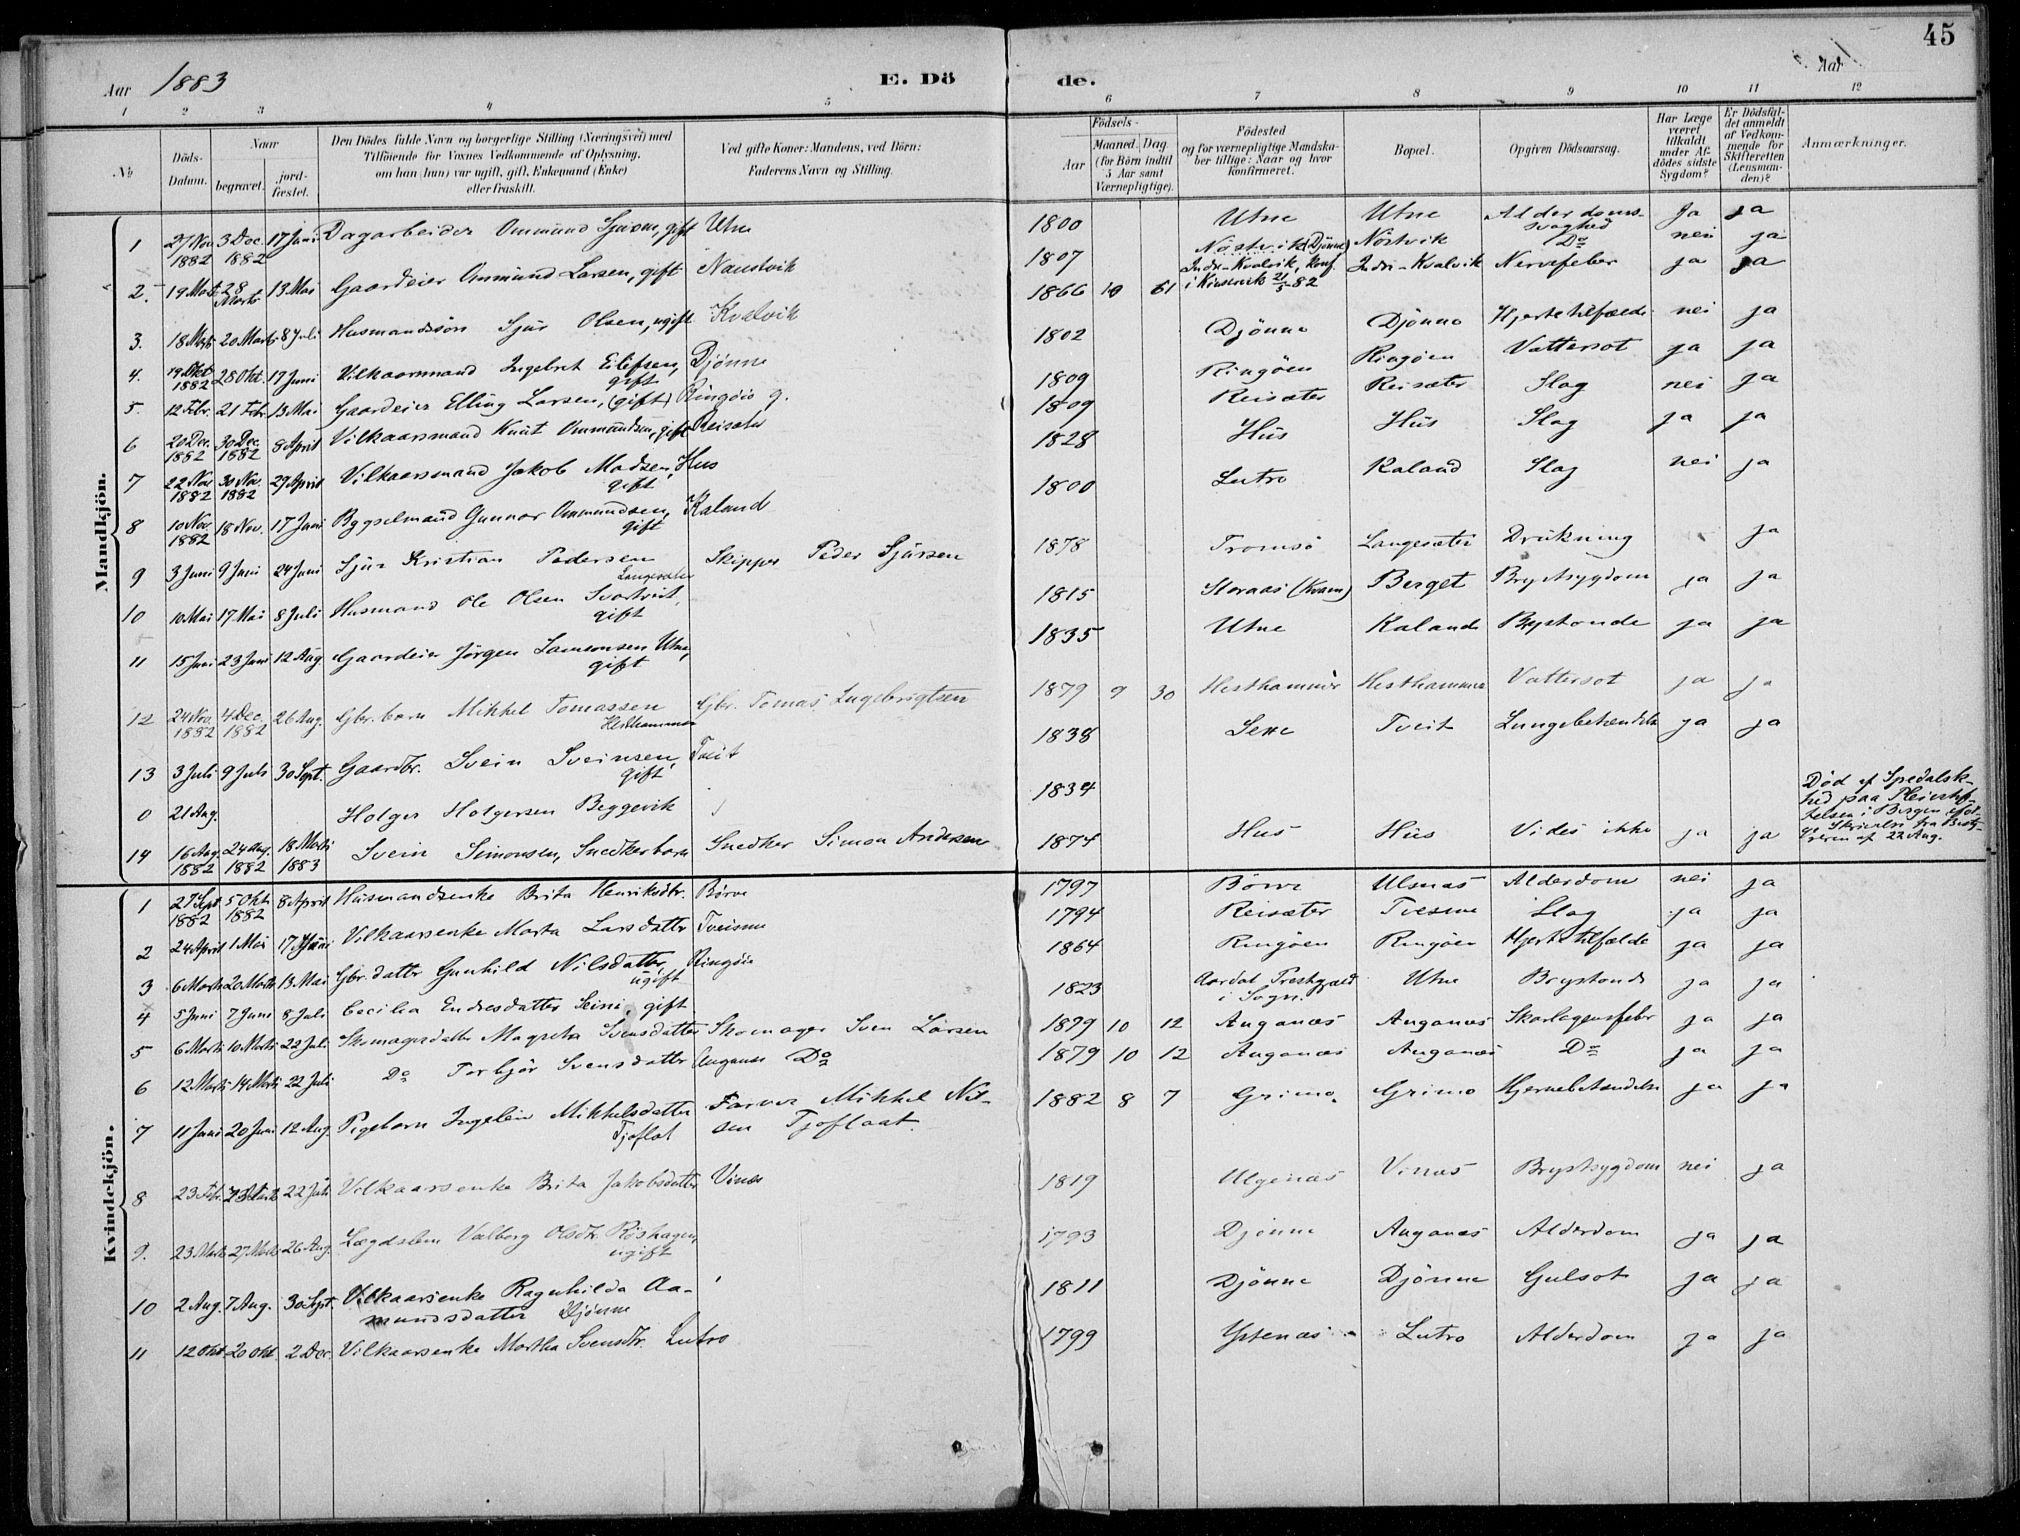 45
Aar 1883
E. Döde.
Aar
1 2 3 4 5 6 7 8 9 10 11 12
No
Döds-Datum.
Naar
begravet.
jordfæstet.
Den Dödes fulde Navn og borgerlige Stilling (Næringsvei) med
Tilföiende for Voxnes Vedkommende af Oplysning,
om han (hun) var ugift, gift, Enkemand (Enke)
eller fraskilt.
Ved gifte Koner: Mandens, ved Börn:
Faderens Navn og Stilling.
Födsels-
Aar
Maaned. Dag
(for Börn indtil
5 Aar samt
Værnepligtige).
Födested
og for værnepligtige Mandskaber tillige: Naar og hvor
konfirmeret.
Bopæl.
Opgiven Dödsaarsag.
Har Læge været tilkaldt under Afdödes sidste Sygdom?
Er Dödsfaldet anmeldt af Vedkommende for Skifteretten (Lensmanden)?
Anmærkninger.
Mandkjön.
1 27 Nov 1882 3 Dec. 1882 17 Juni Dagarbeider Ommund Sjursen, gift Utne 1800 Utne Utne Alderdomssvaghed Ja ja
2. 19 Marts 28 Marts 13 Mai Gaardeier Ommund Larsen, gift Naustvik 1807 Nöstvik (Djönne) Nöstvik Do nei ja
3. 18 Marts 20 Marts 8 Juli Husmandssön Sjur Olsen, ugift Kvalvik 1866 10 61 Indre-Kvalvik, konf. i Kinservik 21/5 82 Indre-Kvalvik Nervefeber ja ja
4. 19 Okt 1882 28 Okt. 17 Juni Vilkaarsmand Ingebret Eilefsen, gift Djönne 1802 Djönne Djönne Hjertetilfælde nei ja
5. 12 Febr. 21 Febr. 13 Mai Gaardeier Elling Larsen, (gift) Ringöio g. 1809 Ringöen Ringöen Vattersot ja ja
6 20 Dec. 1882 30 Dec. 1882 8 April Vilkaarsmand Knut Ommundsen, gift Reisæter 1809 Reisæter Reisæter Slag nei ja
7 22 Nov 1882 30 Nov. 1882 29 April Vilkaarsmand Jakob Madsen, gift Hus 1828 Hus Hus Slag ja ja
8 10 Nov. 1882 18 Nov. 17 Juni Bygselmand Gunnar Ommundsen, gift Kaland 1800 Lutro Kaland Slag nei ja
9 3 Juni 9 Juni 24 Juni Sjur Kristian Pedersen Langesæter Skipper Peder Sjursen 1878 Tromsö Langesæter Drukning ja
10 10 Mai 17 Mai 8 Juli Husmand Ole Olsen Svartveit, gift 1815 Storaas (Kvam) Berget Brystsygdom ja ja
11 15 Juni 23 Juni 12 Aug Gaardeier Jörgen Samsonsen Utne, gift 1835 Utne Kaland Brystonde ja ja
12 24 Nov. 1882 4 Dec. 1882 26 Aug. Gbr. barn Mikkel Tomassen Hesthammer Gbr. Tomas Ingebrigtsen 1879 9 30 Hesthammer Hesthammer Vattersot ja ja
13 3 Juli 9 Juli 30 Sept. Gaardbr. Svein Sveinsen, gift Tveit 1838 Sexe Tveit Lungebetændelse ja ja
0 21 Aug. Holger Holgersen Beggevik 1834 Död af Spedalskhed paa Pleiestiftelsen i Bergen ifölge Skrivelse fra Bestyreren af 22 Aug.
14 16 Aug. 1882 24 Aug. 1882 18 Marts 1883 Svein Simonsen, Snedkerbarn Snedker Simon Andersen 1874 Hus Hus Vides ikke ja ja
Kvindekjön.
1 27 Sept. 1882 5 Okt. 1882 8 April Husmandsenke Brita Henriksdtr. Börve 1797 Börve Ulsnæs Alderdom nei ja
2 24 April 1 Mai 17 Juni Vilkaarsenke Marta Larsdatter Tveisme 1794 Reisæter Tvesme Slag ja ja
3 6 Marts 20 Marts 13 Mai Gbr. datter Gunhild Nilsdatter, ugift Ringöio 1864 Ringöen Ringöen Hjertetilfælde ja ja
4 5 Juni 7 Juni 8 Juli Cecilia Endresdatter Seim, gift 1823 Aardal Prestgjæld i Sogn. Utne Brystonde ja ja
5 6 Marts 10 Marts 22 Juli Skomagerdatter Magreta Svensdatter Skomager Sven Larsen 1879 10 12 Auganæs Auganæs Skarlagensfeber ja ja
6 12 Marts 14 Marts 22 Juli Do Torbjör Svensdatter Auganæs Do 1879 10 12 Auganæs Auganæs Do ja ja
7 11 Juni 20 Juni 12 Aug. Pigebarn Ingelein Mikkelsdatter Tjoflot Farver Mikkel Nilsen Tjoflaat. 1882 8 7 Grimo. Grimo Hjernebetændelse ja ja
8 23 Febr. 7 Marts 22 Juli Vilkaarsenke Brita Jakobsdatter Vinæs 1819 Ulgenæs Vinæs Brystsygdom nei ja
9. 23 Marts 27 Marts 26 Aug. Lægdslem Valborg Olsdtr. Röshagen, ugift 1793 Djönne Auganæs Alderdom ja ja
10 2 Aug. 7 Aug. 30 Sept. Vilkaarsenke Ragnhilda Aamundsdatter Djönne 1811 Djönne Djönne Gulsot ja ja
11 12 Okt. 20 Okt. 2 Dec. Vilkaarsenke Martha Svensdtr. Lutro 1799 Ystenæs Lutro Alderdom ja ja